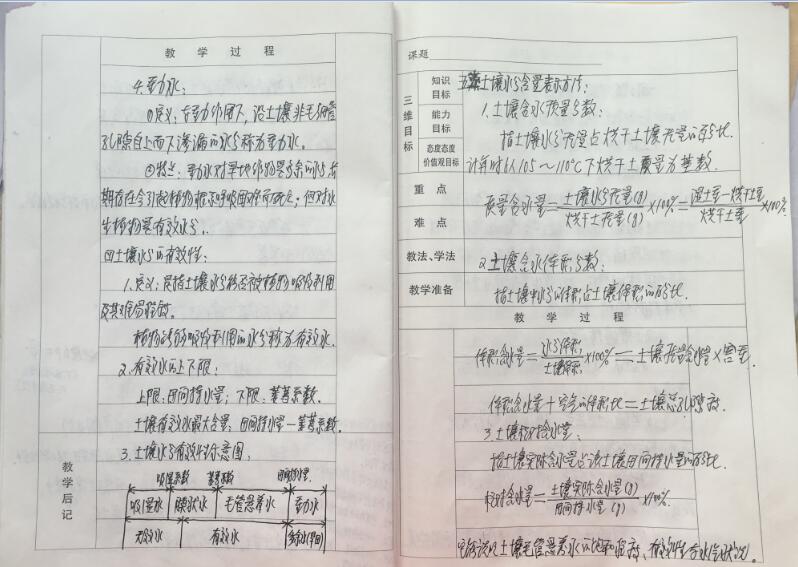 教学过程
4.重力水:
①定义:在重力作用下,沿土壤非毛细管
孔隙自上而下渗漏的水分称为重力水。
②特点:重力水对旱地作物是多余的水,长
期存在会引起植物根系呼吸困难而死亡;但对水
生植物是有效水分。
四土壤水分的有效性:
1.定义:是指土壤水分能否被植物吸收利用
及其难易程度。
植物能够吸收利用的水分称为有效水.
2.有效水的上下限:
上限:田间持水量;下限:萎蔫系数.
土壤有效水最大含量:田间持水量一萎蔫系数.
3.土壤水分有效性示意图:
吸湿系数 萎蔫系数 田间持水量
吸湿水 膜状水 毛管悬着水 重力水
无效水 有效水 多余水(旱田)
教学后记
课题
三维目标
知识目标
能力目标
态度态度价值观目标
重点
难点
教法、学法
教学准备
五土壤水分含量表示方法:
1.土壤含水质量分数:
指土壤水分质量占烘干土壤质量的百分比.
计算时以105~110℃下烘干土质量为基数.
质量含水量=土壤水分质量(g)/烘干土质量(g)×100%=湿土重一烘干土重/烘干土重×100%
2.土壤含水体积分数:
指土壤中水分的体积占土壤体积的百分比.
教学过程
体积含水量=水分体积/土壤体积×100%=土壤质量含水量×容重.
体积含水量+空气的体积比=土壤总孔隙度.
3.土壤相对含水量:
指土壤实际含水量占该土壤田间持水量的百分比.
相对含水量=土壤实际含水量(g)/田间持水量(g)×100%
土壤毛管悬着水的饱和程度、有效性和水、气状况.